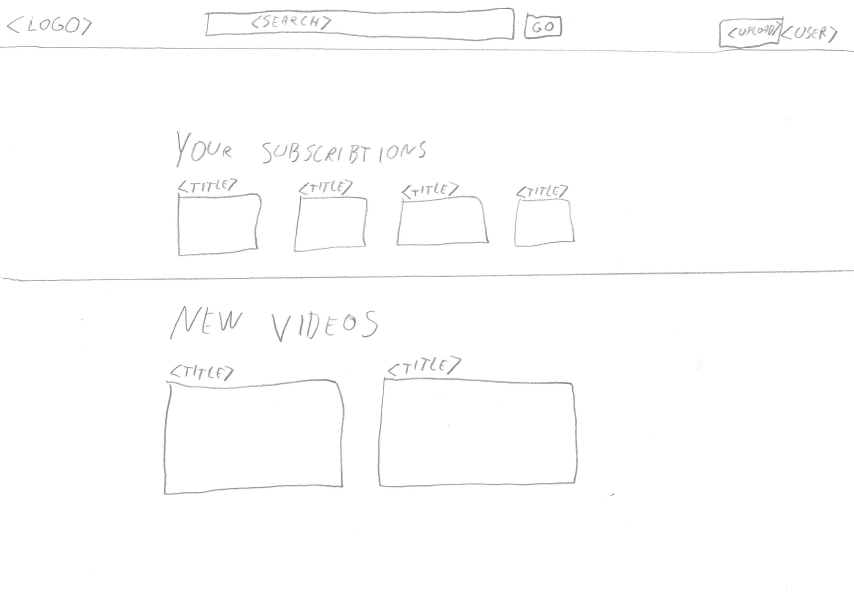 <LOGO> <SEARCH> GO <UPLOAD> <USER>
YOUR SUBSCRIBTIONS
<TITLE> <TITLE> <TITLE> <TITLE>
NEW VIDEOS
<TITLE> <TITLE>